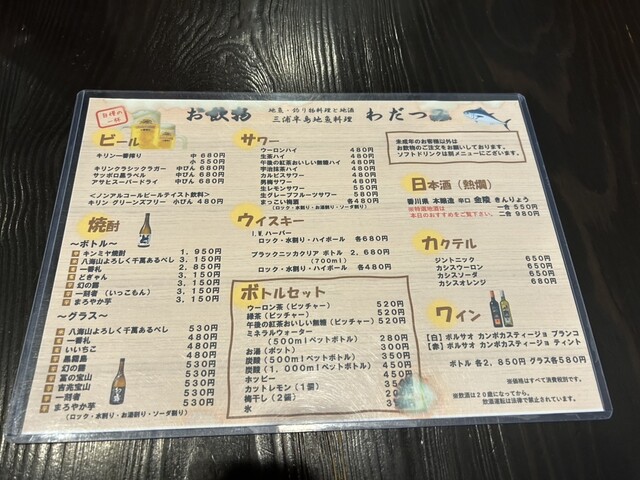 自慢の一杯
お飲物
地魚・釣り物料理と地酒
三浦半島地魚料理
わだつ
ビール
キリン一番搾り 中 680円
小 550円
キリンクラシックラガー 中びん 680円
サッポロ黒ラベル 中びん 680円
アサヒスーパードライ 中びん 680円
<ノンアルコールビールテイスト飲料>
キリン グリーンズフリー 小びん 480円
焼酎
～ボトル～
キンミヤ焼酎 1,950円
八海山よろしく千萬あるべし 3,150円
一番札 2,850円
どぎゃん 3,150円
幻の露 3,150円
一刻者(いっこもん) 3,150円
まろやか芋 3,150円
～グラス～
八海山よろしく千萬あるべし 530円
一番札 480円
いいちこ 480円
黒霧島 480円
幻の露 530円
富の宝山 530円
吉兆宝山 530円
一刻者 530円
まろやか芋 530円
(ロック・水割り・お湯割り・ソーダ割り)
サワー
ウーロンハイ 480円
生茶ハイ 480円
午後の紅茶おいしい無糖ハイ 480円
宇治抹茶ハイ 480円
カルピスサワー 480円
男梅サワー 480円
生レモンサワー 550円
生グレープフルーツサワー 580円
まっこい梅酒 各480円
(ロック・水割り・お湯割り・ソーダ割り)
ウィスキー
I.W.ハーパー
ロック・水割り・ハイボール 各680円
ブラックニッカクリア ボトル 2,680円
(700ml)
ロック・水割り・ハイボール 各480円
ボトルセット
ウーロン茶(ピッチャー) 520円
緑茶(ピッチャー) 520円
午後の紅茶おいしい無糖(ピッチャー) 520円
ミネラルウォーター
(500mlペットボトル) 280円
お湯(ポット) 300円
炭酸(500mlペットボトル) 350円
炭酸(1,000mlペットボトル)
ホッピー
カットレモン(1個)
梅干し(2個)
氷
未成年のお客様以外は
お飲物のご注文をお願いしております。
ソフトドリンクは別メニューにございます。
日本酒(熱燗)
香川県 本醸造 辛口 金陵 きんりょう
※特選地酒は 一合 550円
本日のおすすめをご覧下さい。 二合 980円
カクテル
ジントニック 650円
カシスウーロン 650円
カシスソーダ 650円
カシスオレンジ 680円
ワイン
【白】ボルサオ カンポカスティージョ ブランコ
【赤】ボルサオ カンポカスティージョ ティント
ボトル 各2,850円 グラス各580円
※価格はすべて消費税別です。
※飲酒は20歳になってから。
飲酒運転は法律で禁止されています。